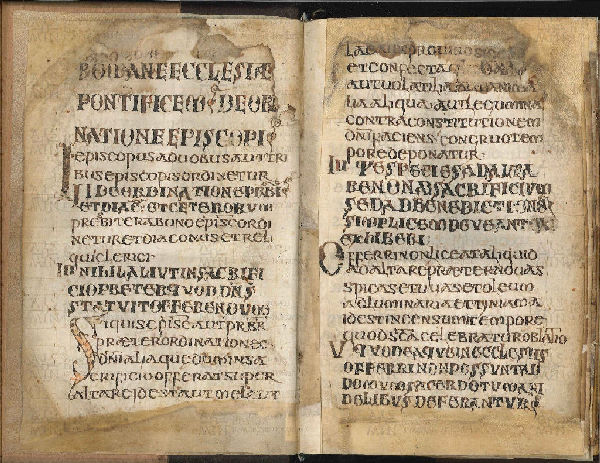 ROMANE ECCLESIÆ
PONTIFICEM DE OR
NATIONE EPISCOPI
EPISCOPUS A DUOBUS AUT TRI
BUS EPISCOPIS ORDINETUR
II DE ORDINATIONE PRBIS
ET DIAC ET CETERORUM
PRESBITER AB UNO EPISC ORDI
NETUR ET DIACONUS ET RELI
QUI CLERICI
III NIHIL ALIUT IN SACRIFI
CIO PRETER QUOD DNS
STATUIT OFFERENDUM
SI QUIS EPISC AUT PRBR
PRÆTER ORDINATIONEC
DNI ALIA QUEDUM IN SA
CRIFICIO OFFERAT SUPER
ALTARE ID EST AUT MEL AUT
ET CONFECTA
AUT UOLATILIA AUT ANIMA
LIA ALIQUA AUT LEGUMINA
CONTRA CONSTITUTIONEM
DNI FACIENS CONGRUO TEM
PORE DEPONATUR
IIII PE SPECIES AD ALTA
RE NON AD SACRIFICIUM
SED AD BENEDICTIONEM
SIMPLICEM DEUEANT
EXHIBERI
OFFERRI NON LICEAT ALIQUID
AD ALTARE PRÆTER NOUAS
SPICAS ET UUAS ET OLEUM
AD LUMINARIA ET TIMIAMA
ID EST INCENSUM TEMPORE
QUO SCA CELEBRATUR OBLATIO
V QUOD EA QUE IN ECCLESIIS
OFFERRI NON POSSUNT AD
DOMUM SACERDOTUM A FI
DELIBUS DEFERANTUR